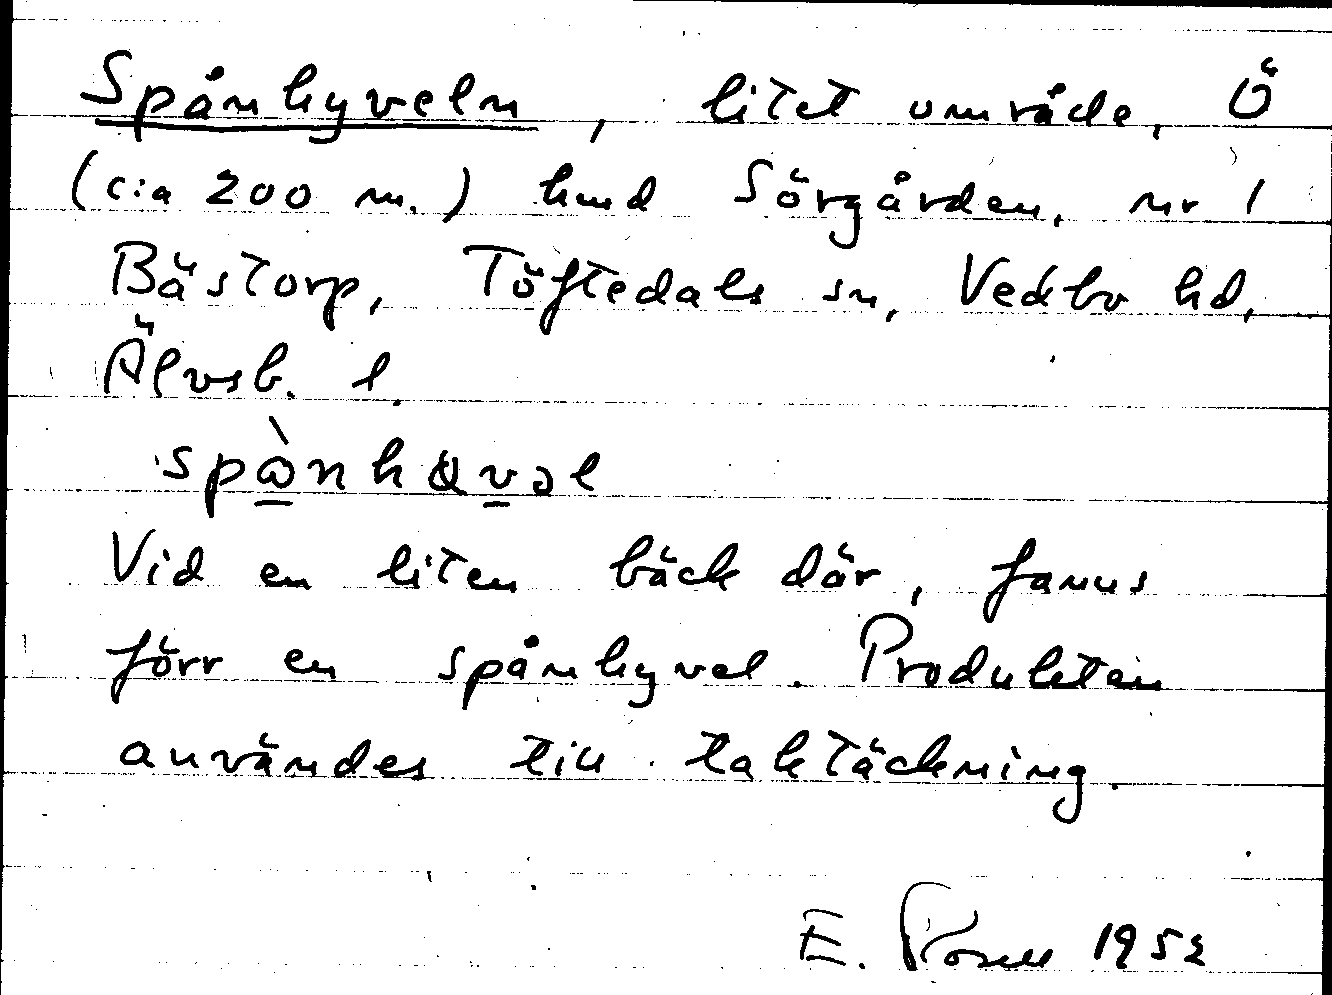 Spånhyveln, litet område, Ö
(c:a 200 m.) hmd Sörgården, nr 1
Bästorp, Töftedals sn, Vedbo hd,
Älvsb. l.
Vid en liten bäck där, fanns
förr en spånhyvel. Produkten
användes till taktäckning.
E. 1952